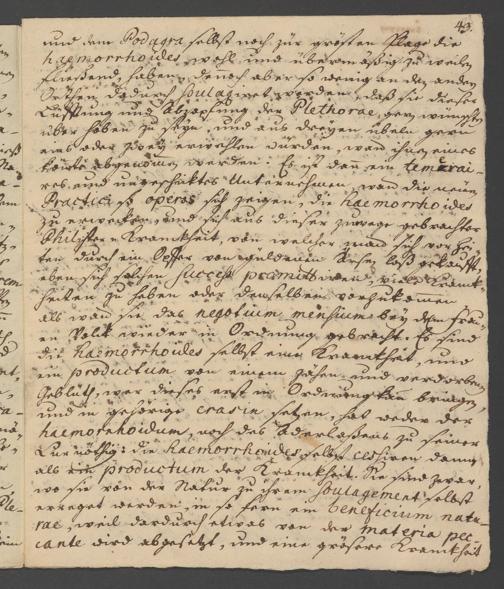 43.
und dem Podagra selbst noch zur grösten Plage die
haemorrhoides, wohl und übermäßig zu weilen
fließend, haben, denoch aber so wenig an den andern
Orthen dadurch soulagiret werden, daß sie dieser
Lüfftung und Abzapfung der Plethorae, gern wünschten
über hoben zu seyn, und aus dreyen übeln gern
eins oder zwey erwehlen würden, wan ihnen eines
könte abgenomen werden. Es ist den ein temerai-
res und ungeschicktes Unternehmen, wan die neuen
Practici so operos sich zeigen, die haemorrhoides
zu erwecken, und sich aus dieser zuwege gebrachten
Philister Kranckheit, von welcher man sich vor Zei-
ten durch ein Opffer von guldenen loß gekaufft,
eben sich solchen success promittiren, viele Kranck-
heiten zu haben oder denselben vorzukomen
als wan sie das negotium mensium bey dem Frau-
en Volk wieder in Ordnung gebracht. Es sind
die haemorrhoides selbst eine Kranckheit, und
ein productum von einem zähen und verdorben
Geblüth, wer dieses erst in Ordnung kan bringen,
und in gehörige crasin setzen, hat weder der
haemorrhoidum, noch des Aderlaßens zu seiner
Cur nöthig: die haemorrhoides selbst cessiren dann
als ein productum der Kranckheit. Sie sind zwar,
wo sie von der Natur zu ihrem soulagement selbst
erreget werden, in so fern ein beneficium natu-
rae, weil dardurch etwas von der materia pec-
cante wird abgesetzt, und eine grösere Kranckheit